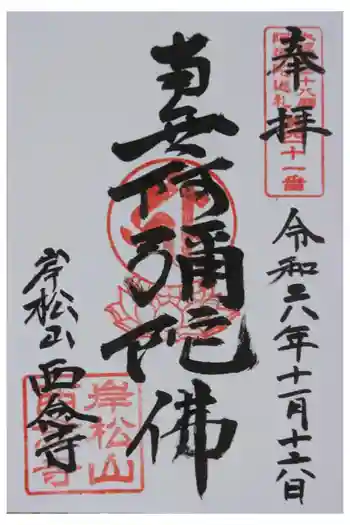 奉拝
四十一番
令和六年十一月十六日
南無阿彌陀佛
岸松山
西念寺
岸松山
西念寺